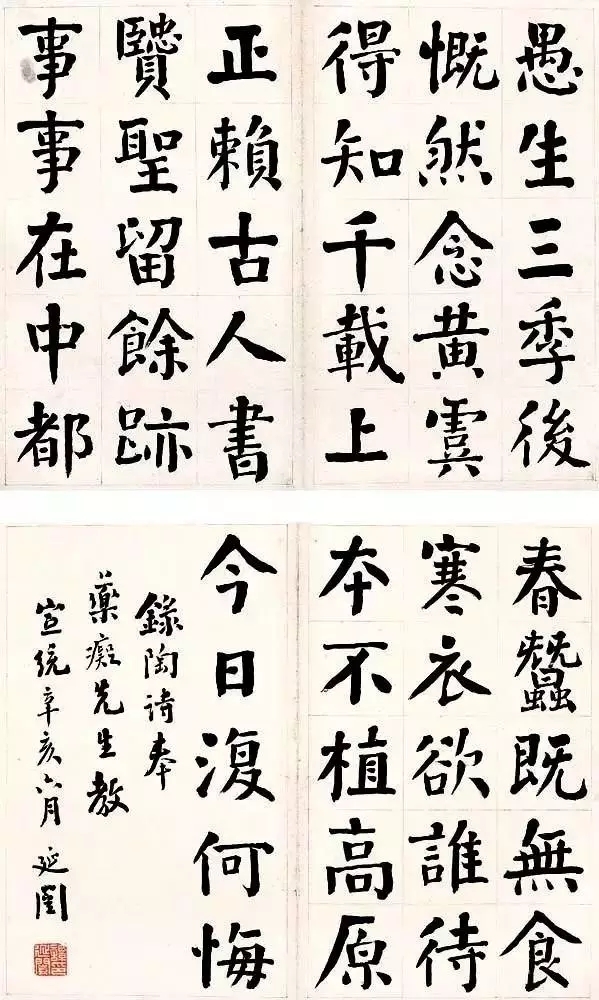 愚生三季後
慨然念黄虞
得知千載上
正賴古人書
贒聖留餘跡
事事在中都
春蠶既無食
寒衣欲誰待
本不植高原
今日復何悔
錄陶詩奉
藥癡先生教
宣統辛亥六月 延闓